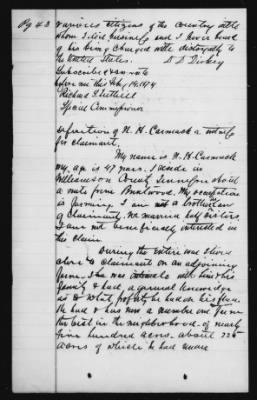 Pg 43
various citizens of the country with
whom I did business and I never heard
of his being charged with disloyalty to
the United States. D. D. Dickey
Subscribed & sworn to
before me this
Richard
Special Commissioner
Deposition of N. H. Carmack a witness
for claimant.
My name is N. H. Carmack
my age is 47 years. I reside in
Williamson County Tennessee about
a mile from Brentwood. My occupation
is farming. I am a brother in law
of Claimant. We married sisters.
I am not beneficially interested in
this claim.
During the entire war I lived
close to claimant on an adjoining
farm. I was intimate with him & his
family & had a general knowledge
as to what property he had on his place.
He had & has now a number one farm
the best in the neighborhood of nearly
five hundred acres. about 225
acres of which he had under